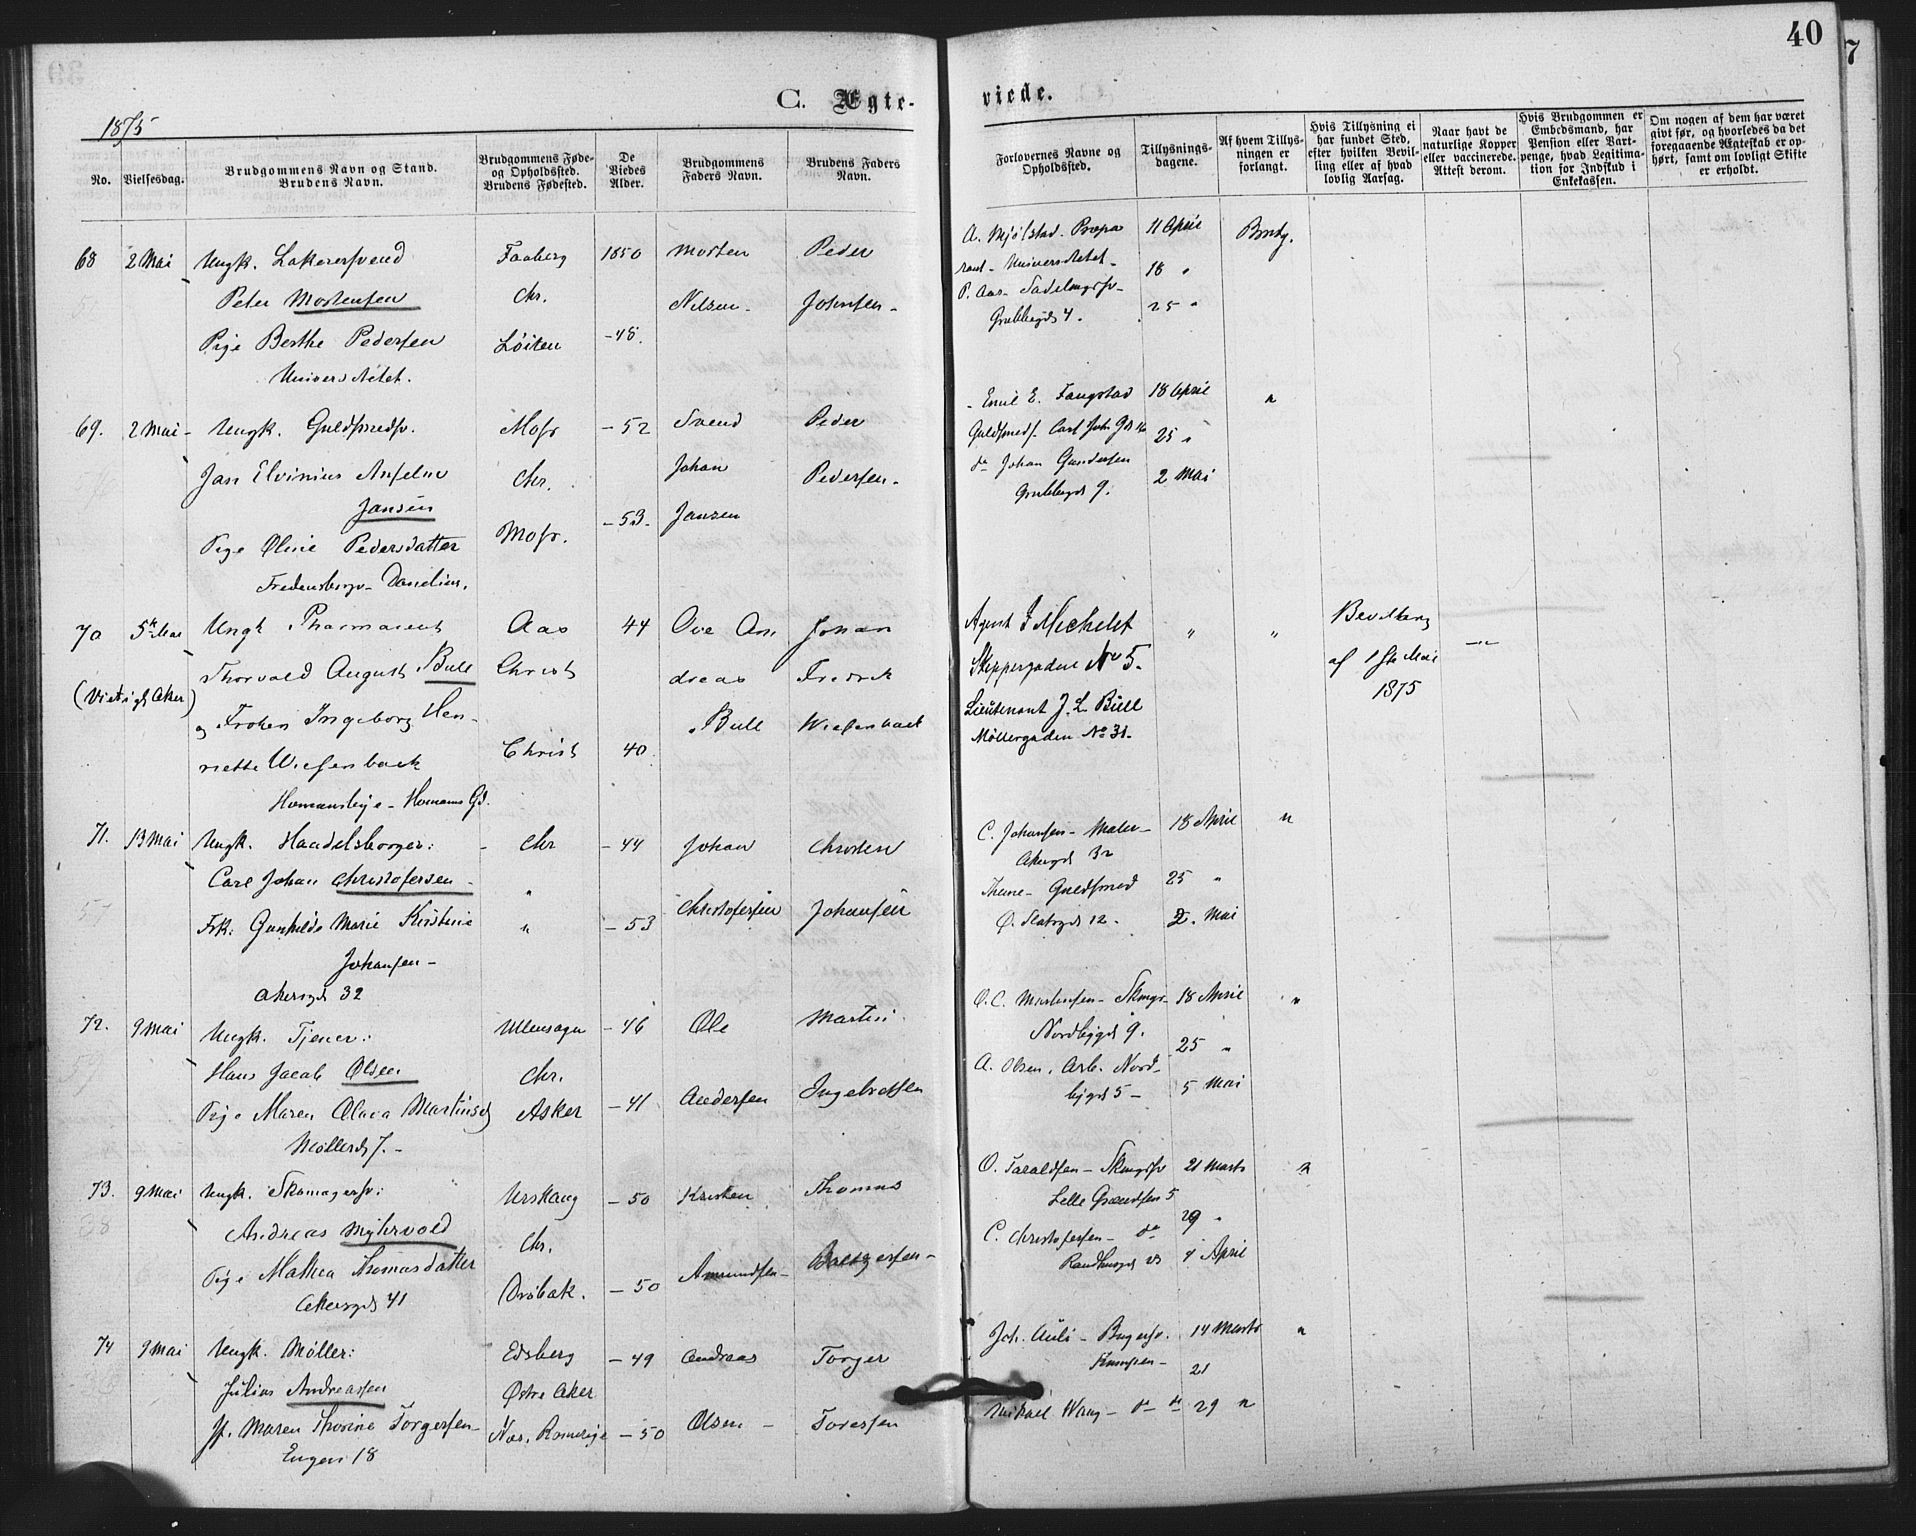 40
7
C. Ægte-
viede.
1875
No.
Vielsesdag.
Brudgommens Navn og Stand.
Brudens Navn.
Brudgommens Føde-
og Opholdssted.
Brudens Fødested.
De
Viedes
Alder.
Brudgommens
Faders Navn.
Brudens Faders
Navn.
Forlovernes Navne og
Opholdssted.
Tillysnings-
dagene.
Af hvem Tillys-
ningen er
forlangt.
Hvis Tillysning ei
har fundet Sted,
efter hvilken Bevil-
ling eller af hvad
lovlig Aarsag.
Naar havt de
naturlige Kopper
eller vaccinerede.
Attest derom.
Hvis Brudgommen er
Embedsmand, har
Pension eller Vart-
penge, hvad Legitima-
tion for Indskud i
Enkekassen.
Om nogen af dem har været
givt før, og hvorledes da det
foregaaende Ægteskab er op-
hørt, samt om lovligt Skifte
er erholdt.
68 2 Mai Ungk. Lakerersvend Faaberg 1850 Morten Peder
Peter Mortensen Chr. Nilsen- Johnsen-
Pige Berthe Pedersen Løiten -48.
Universitetet.
A. Mjølstad- Præpa 11 April Brudg.
rant- Universitetet- 18 "
P. Aas- Sadelmgsv-
Grubbegd 4. 25 "
69. 2 Mai- Ungk. Guldsmedsv. Moss -52 Svend Peder
Jan Elvinius Anselm Chr. Johan Pedersen-
Jansen -53- Jansen
Pige Oline Pedersdatter Moss.
Fredensborgv- Danelius.
- Emil E. Fangstad 18 April "
Guldsmeds. Carl Joh. Gd 25 "
do Johan Gundersen
Grubbegd 9. 2 Mai
70 5te Mai Ungk Pharmaceut Aas 44 Ove An Johan
(Viet i V. Aker) Thorvald August Bull Christ dreas Fredrik
og Frøken Ingeborg Hen- Bull Wiesenbach
riette Wiesenback Christ 40
Homansbye- Homans Gd.
Agent J Michelet " " Bevilling
Skippergaden No 5. af 1ste Mai
Lieutenant J. L. Bull 1875
Møllergaden No 31.
71. 13 Mai Ungk. Handelsborger: Chr -44 Johan Christen
Carl Johan Christofersen- "
Frk: Gunhilde Marie Kirstine " -53 Christofersen Johansen
Johansen-
Akersgd 32
C. Johansen- Maler- 18 April "
Akersgd 32
Theme- Guldsmed 25 "
Ø. Slotsgd 12. 2. Mai
72. 9 Mai Ungk. Tjener: Ullensager -46 Ole Martin
Hans Jacob Olsen Chr.
Pige Maren Olava Martinsd Asker -41 Andersen Ingebretsen
Møllergd 7.-
O. C. Mortensen- Skmgr- 18 April "
Nordbygd 9. 25 "
A. Olsen, Arb. Nord-
bygd 5- 5 Mai
73. 9 Mai Ungk. Skomagersv: Urskaug -50 Kristen Thomas
Andreas Myhrvold Chr.
Pige Mathea Thomasdatter Drøbak. -50 Amundsen- Børgersen-
Akersgd 41
O. Taraldsen- Skmgsv 21 Marts "
Lille Grændsen 5
C. Christofersen- do 29 "
Raadhusgd 23 4 April
74 9 Mai Ungk. Møller: Edsberg -49 Andreas Torger
Julius Andreassen Østre Aker
P. Maren Thorine Torgersen- Næs, Romerige -50 Olsen- Toresen
Engen 18
Joh. Auli- Bagersv. 14 Marts "
Kampen- 21
Mikael Wang- do do 29 "